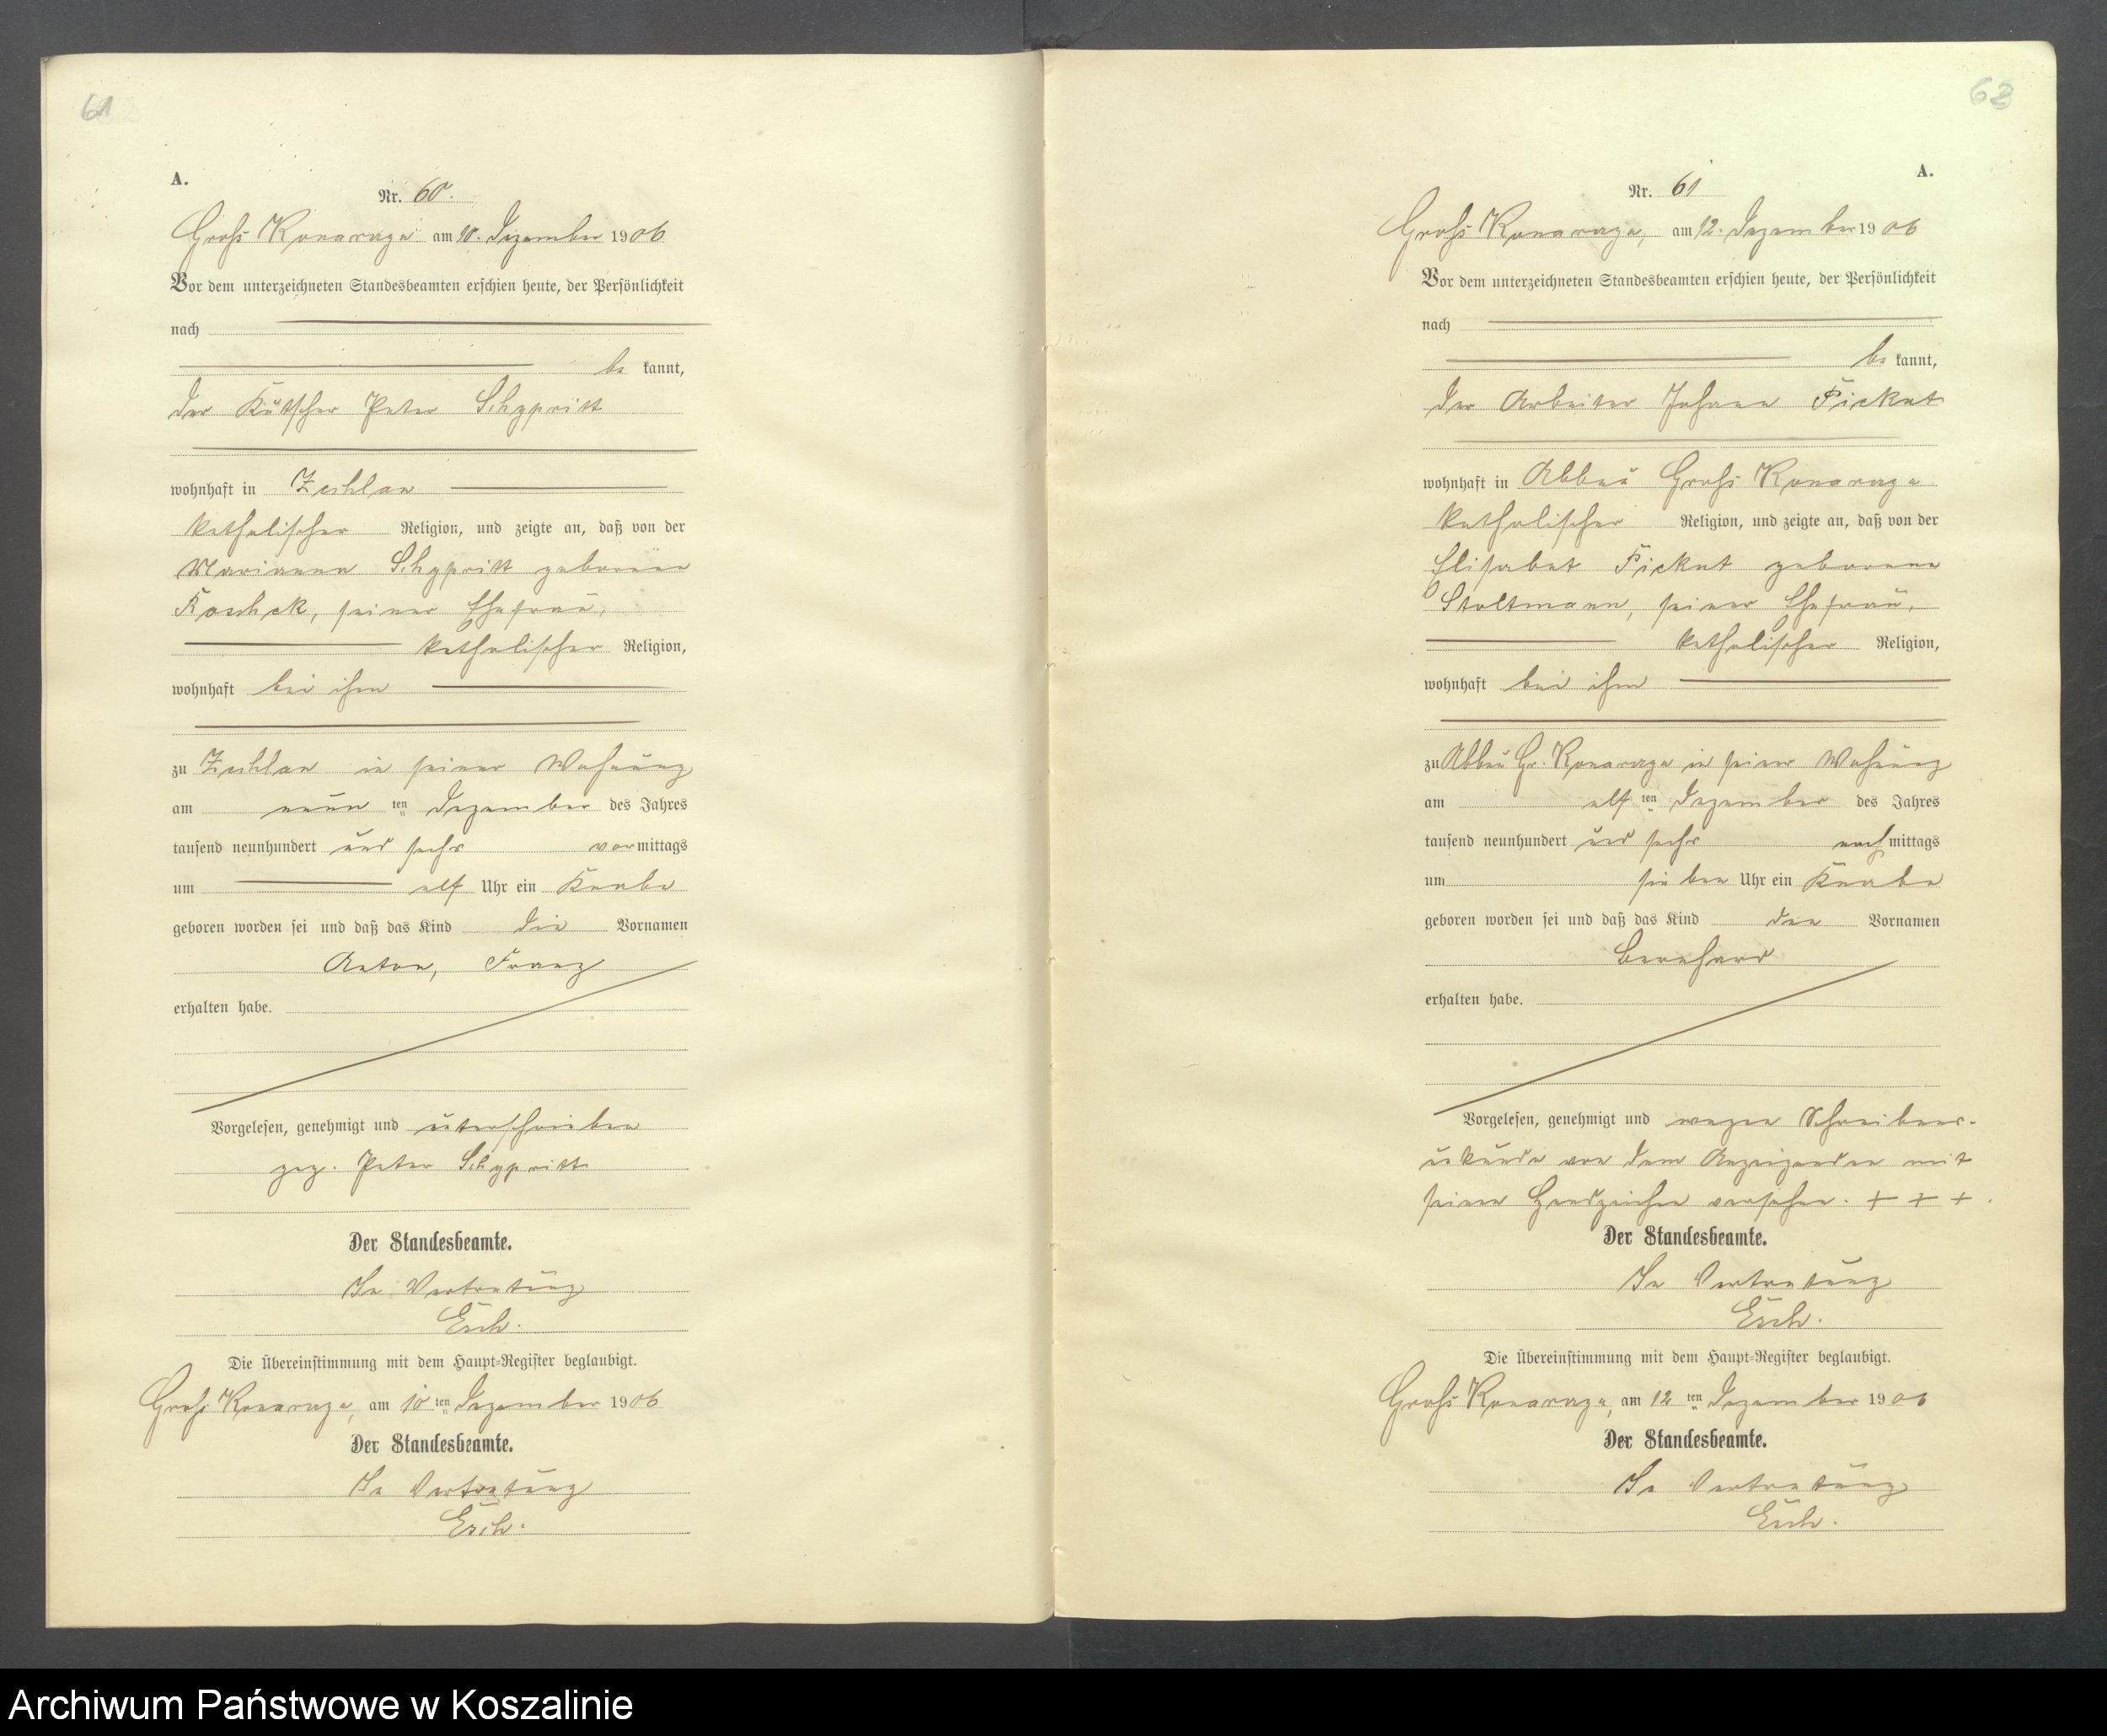 61
A.
Nr. 60.
Groß Konarczyn am 10. Dezember 1906
Vor dem unterzeichneten Standesbeamten erschien heute, der Persönlichkeit
nach
be kannt,
der Kutscher Peter
wohnhaft in
katholischer Religion, und zeigte an, daß von der
Marianna geborenen
seiner Ehefrau,
katholischer Religion,
wohnhaft bei ihm
zu in seiner Wohnung
am neun ten Dezember des Jahres
tausend neunhundert und sechs vormittags
um elf Uhr ein Knabe
geboren worden sei und daß das Kind die Vornamen
Anton, Franz
erhalten habe.
Vorgelesen, genehmigt und unterschrieben
gez. Peter
Der Standesbeamte.
In Vertretung
Esch.
Die Übereinstimmung mit dem Haupt-Register beglaubigt.
Groß am 10 ten Dezember 1906
Der Standesbeamte.
In Vertretung
Esch.
62
A.
Nr. 61
Groß am 12. Dezember 1906
Vor dem unterzeichneten Standesbeamten erschien heute, der Persönlichkeit
nach
be kannt,
der Arbeiter Johann
wohnhaft in Abbau Groß
katholischer Religion, und zeigte an, daß von der
Elisabet geborene
Stoltmann, seiner Ehefrau,
katholischer Religion,
wohnhaft bei ihm
zu Abbau Gr. in seiner Wohnung
am elf ten Dezember des Jahres
tausend neunhundert und sechs nachmittags
um sieben Uhr ein Knabe
geboren worden sei und daß das Kind den Vornamen
Bernhard
erhalten habe.
Vorgelesen, genehmigt und wegen Schreibens-
unkunde von dem Anzeigenden mit
seinen Handzeichen versehen. + + +.
Der Standesbeamte.
In Vertretung
Esch.
Die Übereinstimmung mit dem Haupt-Register beglaubigt.
Groß am 12 ten Dezember 1906
Der Standesbeamte.
In Vertretung
Esch.
Archiwum Państwowe w Koszalinie